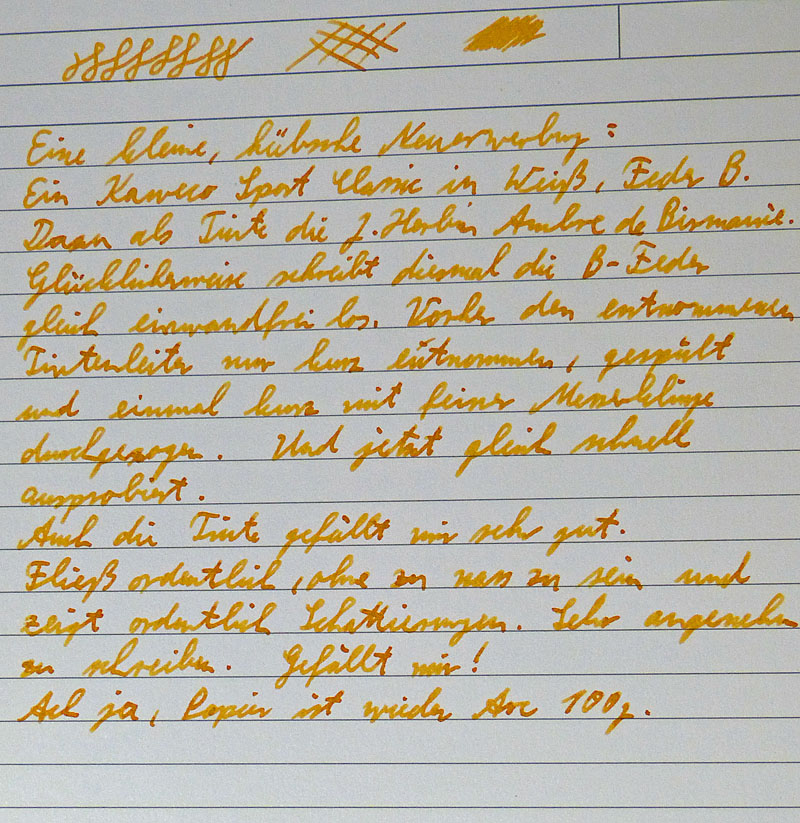 Eine kleine, hübsche Neuerwerbung:
Ein Kaweco Sport Classic in Weiß, Feder B.
Dazu als Tinte die J. Herbin Ambre de Birmanie.
Glücklicherweise schreibt diesmal die B-Feder
gleich einwandfrei los. Vorher den entnommenen
Tintenleiter nur kurz entnommen, gespült
und einmal kurz mit feiner Messerklinge
durchgezogen. Und jetzt gleich schnell
ausprobiert.
Auch die Tinte gefällt mir sehr gut.
Fließt ordentlich, ohne zu nass zu sein und
zeigt ordentlich Schattierungen. Sehr angenehm
zu schreiben. Gefällt mir!
Ach ja, Papier ist wieder 100g.